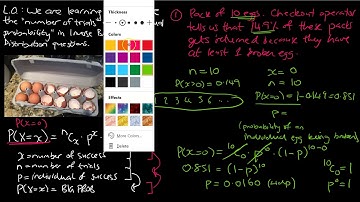 L.O: We are learning
the "number of trials
probability" in Inverse B
Distribution questions.
P(X=0)
P(X=x) = ⁿCₓ · pˣ
x = number of success
n = number of trials
p = individual of success
P(X=x) = Big Prob
Thickness
Colors
Effects
More Colors...
Delete
① Pack of 10 eggs. Checkout operator
tells us that 14.9% of these packs
gets returned because they have
at least 1 broken egg.
n = 10
x = 0
P(X>0) = 0.149
n = 10
P(X=0) = 1-0.149 = 0.851
1 2 3 4 5 6 ...
P =
(probability of an
individual egg being broken)
P(X=0) = ¹⁰C₀ · p⁰ · (1-p)¹⁰⁻⁰
0.851 = (1-p)¹⁰
¹⁰C₀ = 1
P = 0.0160 (4dp)
p⁰ = 1